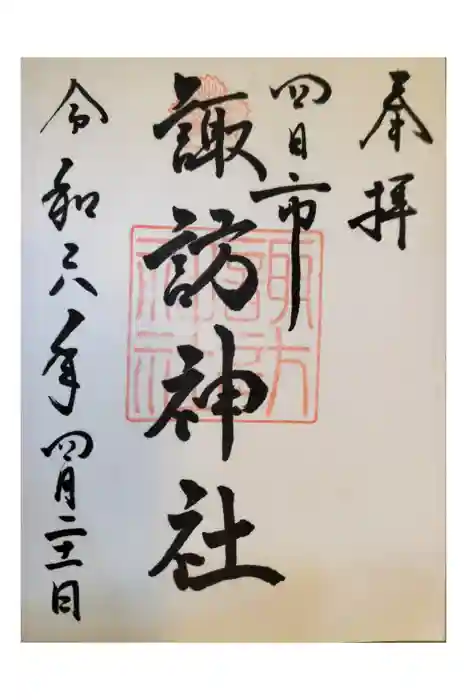 奉拝
四日市
諏訪神社
諏訪神社
令和六年四月二十一日